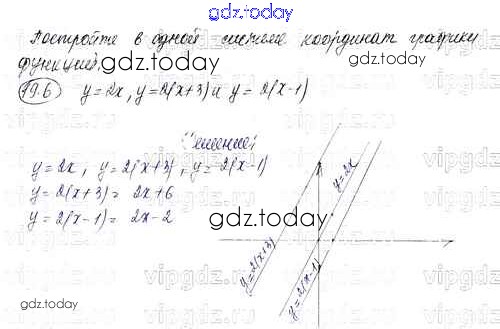 gdz.today
Постройте в одной системе координат графики
функцией.
gdz.today
19.6 y = 2x, y = 2(x+3) и y = 2(x-1)
Решение:
y = 2x, y = 2(x+3), y = 2(x-1)
y = 2(x+3) = 2x+6
y = 2(x-1) = 2x-2
gdz.today
y=2x
y=2(x+3)
y=2(x-1)
gdz.today
gdz.today
vipgdz.ru